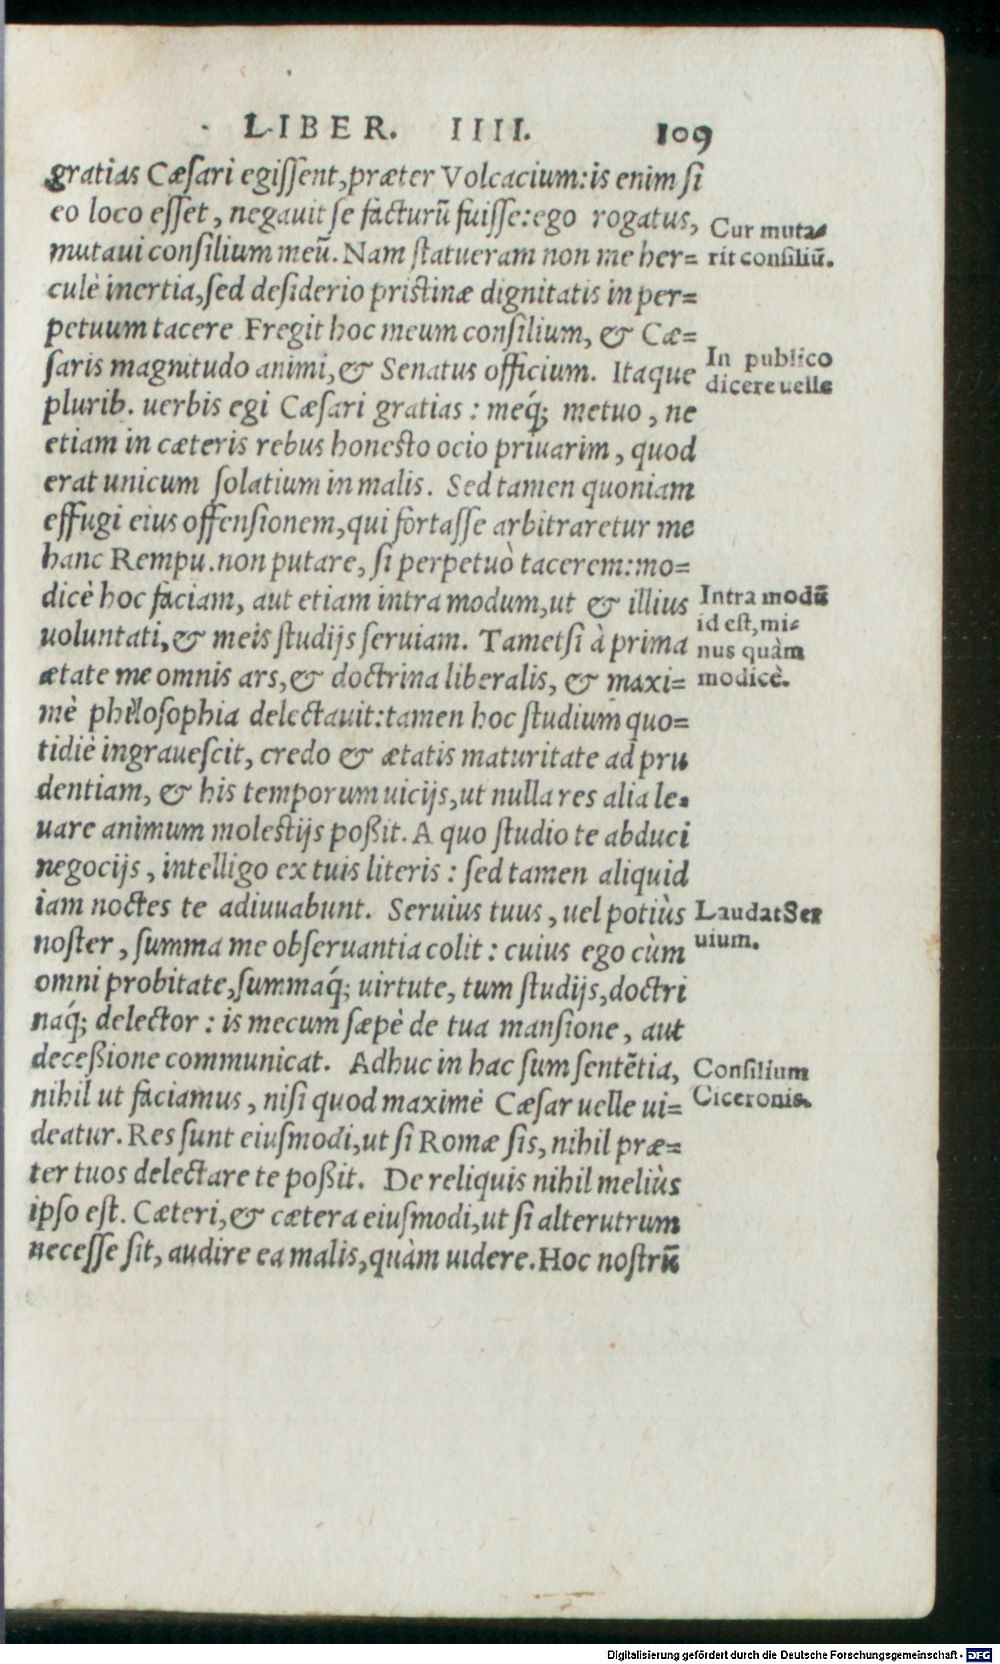 LIBER. IIII. 109
gratias Cæsari egissent, præter Volcacium: is enim si
eo loco esset, negauit se facturũ fuisse: ego rogatus,
mutaui consilium meũ. Nam statueram non me her=
culè inertia, sed desiderio pristinæ dignitatis in per=
petuum tacere Fregit hoc meum consilium, & Cæ=
saris magnitudo animi, & Senatus officium. Itaque
plurib. uerbis egi Cæsari gratias: meq́; metuo, ne
etiam in cæteris rebus honesto ocio priuarim, quod
erat unicum solatium in malis. Sed tamen quoniam
effugi eius offensionem, qui fortasse arbitraretur me
hanc Rempu. non putare, si perpetuò tacerem: mo=
dicè hoc faciam, aut etiam intra modum, ut & illius
uoluntati, & meis studijs seruiam. Tametsi à prima
ætate me omnis ars, & doctrina liberalis, & maxi=
mè philosophia delectauit: tamen hoc studium quo=
tidiè ingrauescit, credo & ætatis maturitate ad pru
dentiam, & his temporum uicijs, ut nulla res alia le=
uare animum molestijs poßit. A quo studio te abduci
negocijs, intelligo ex tuis literis: sed tamen aliquid
iam noctes te adiuuabunt. Seruius tuus, uel potiùs
noster, summa me obseruantia colit: cuius ego cùm
omni probitate, summaq́; uirtute, tum studijs, doctri
naq́; delector: is mecum sæpè de tua mansione, aut
deceßione communicat. Adhuc in hac sum sentẽtia,
nihil ut faciamus, nisi quod maximè Cæsar uelle ui=
deatur. Res sunt eiusmodi, ut si Romæ sis, nihil præ=
ter tuos delectare te poßit. De reliquis nihil meliùs
ipso est. Cæteri, & cætera eiusmodi, ut si alterutrum
necesse sit, audire ea malis, quàm uidere. Hoc nostrũ
Cur muta=
rit consiliũ.
In publico
dicere uelle
Intra modũ
id est, mi=
nus quàm
modicè.
Laudat Ser
uium.
Consilium
Ciceronis.
Digitalisierung gefördert durch die Deutsche Forschungsgemeinschaft - DFG